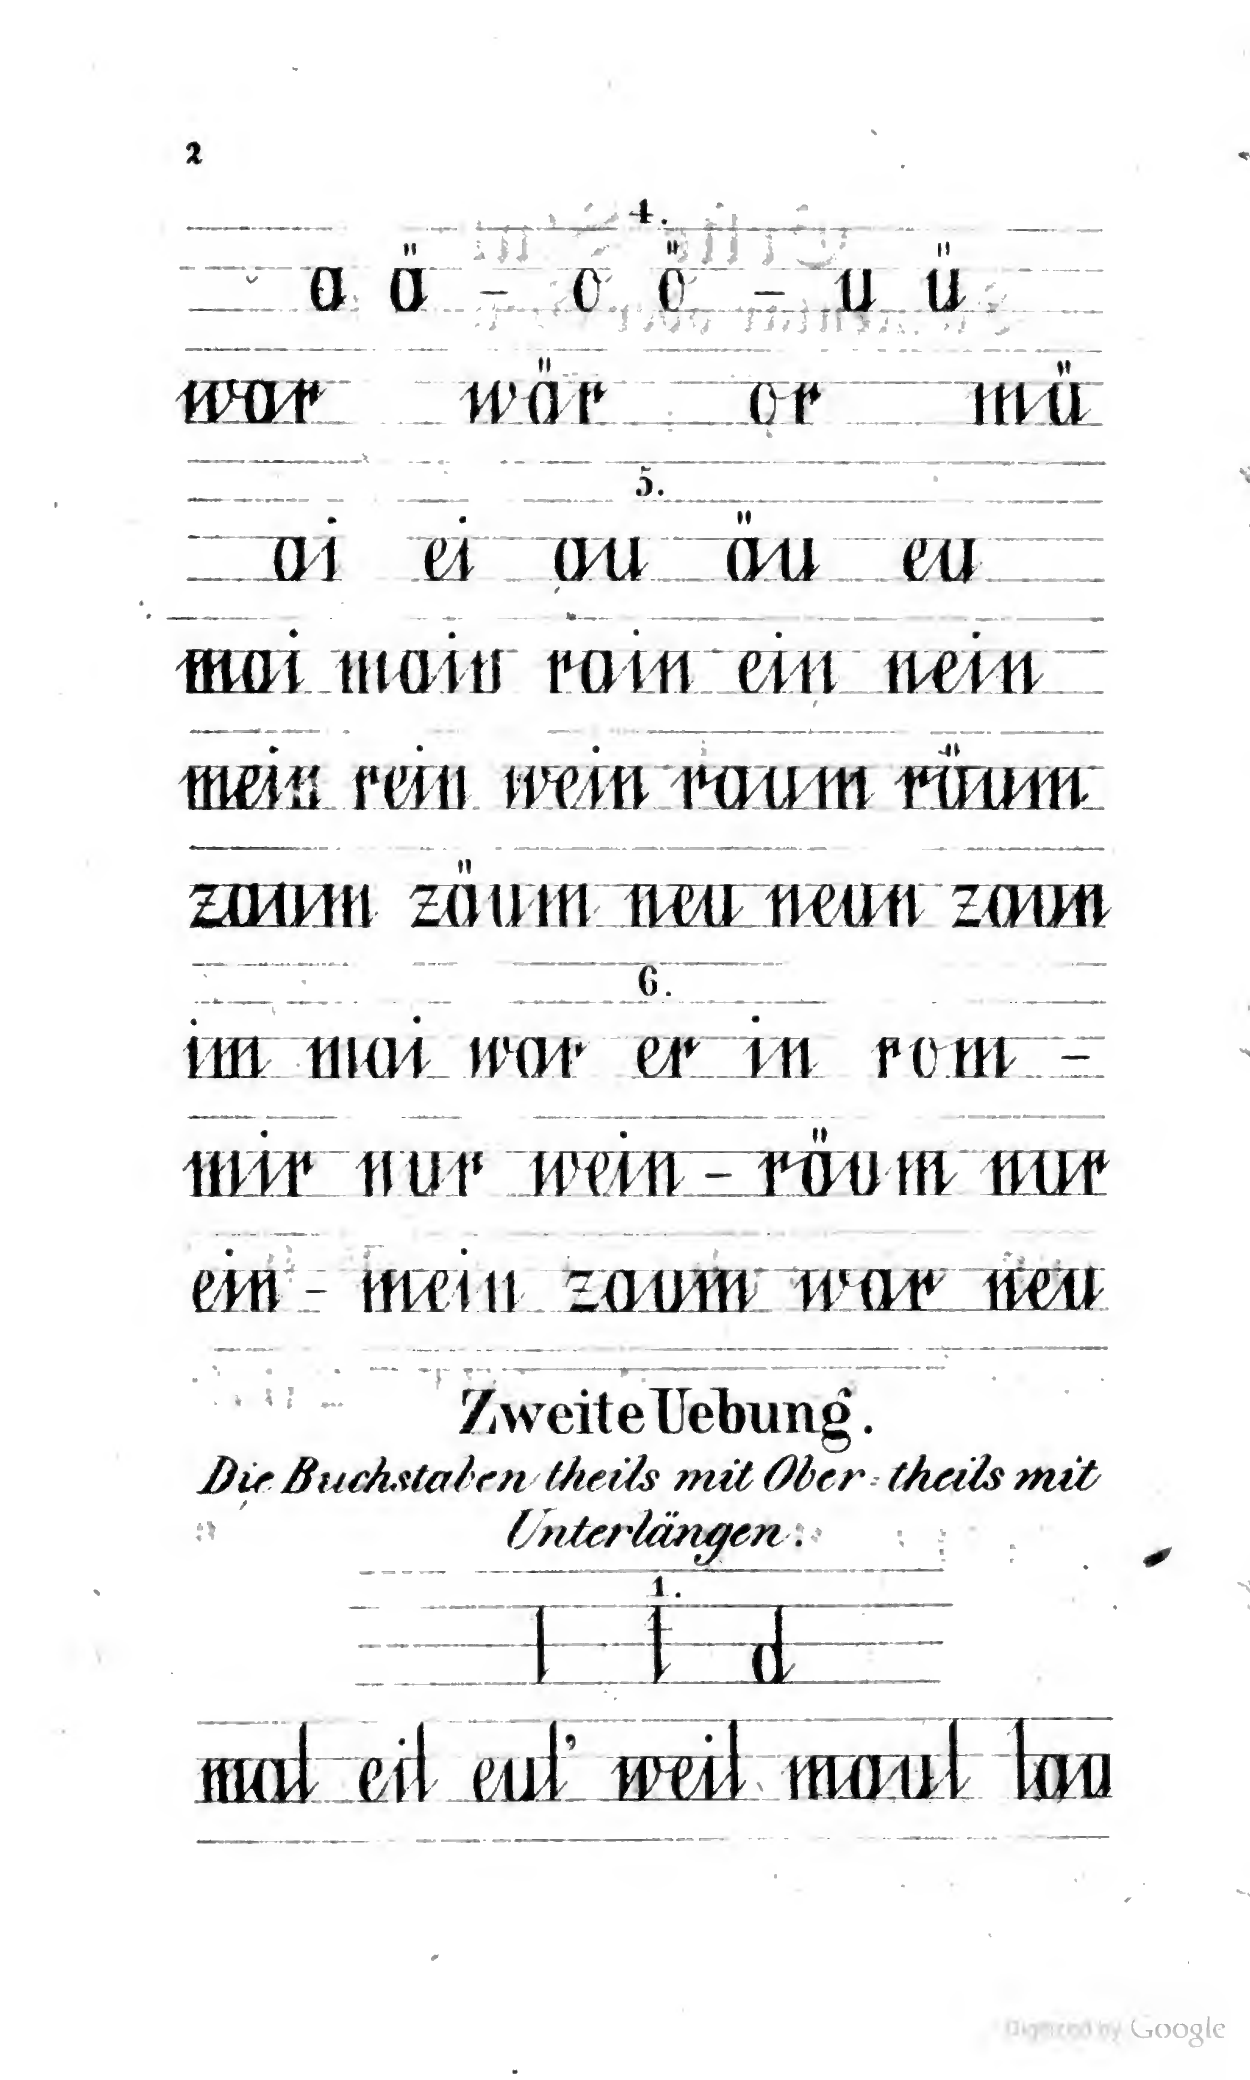 2
4.
a ä - o ö - u ü
war wär or mü
5.
ai ei au äu eu
mai main rain ein nein
mein rein wein raum räum
zaum zäum neu neun zaum
6.
im mai war er in rom -
mir nur wein - räum nur
ein - mein zaum war neu
Zweite Uebung.
Die Buchstaben theils mit Ober - theils mit
Unterlängen.
1.
l t d
mal eil eul' weil maul lau
Digitized by Google